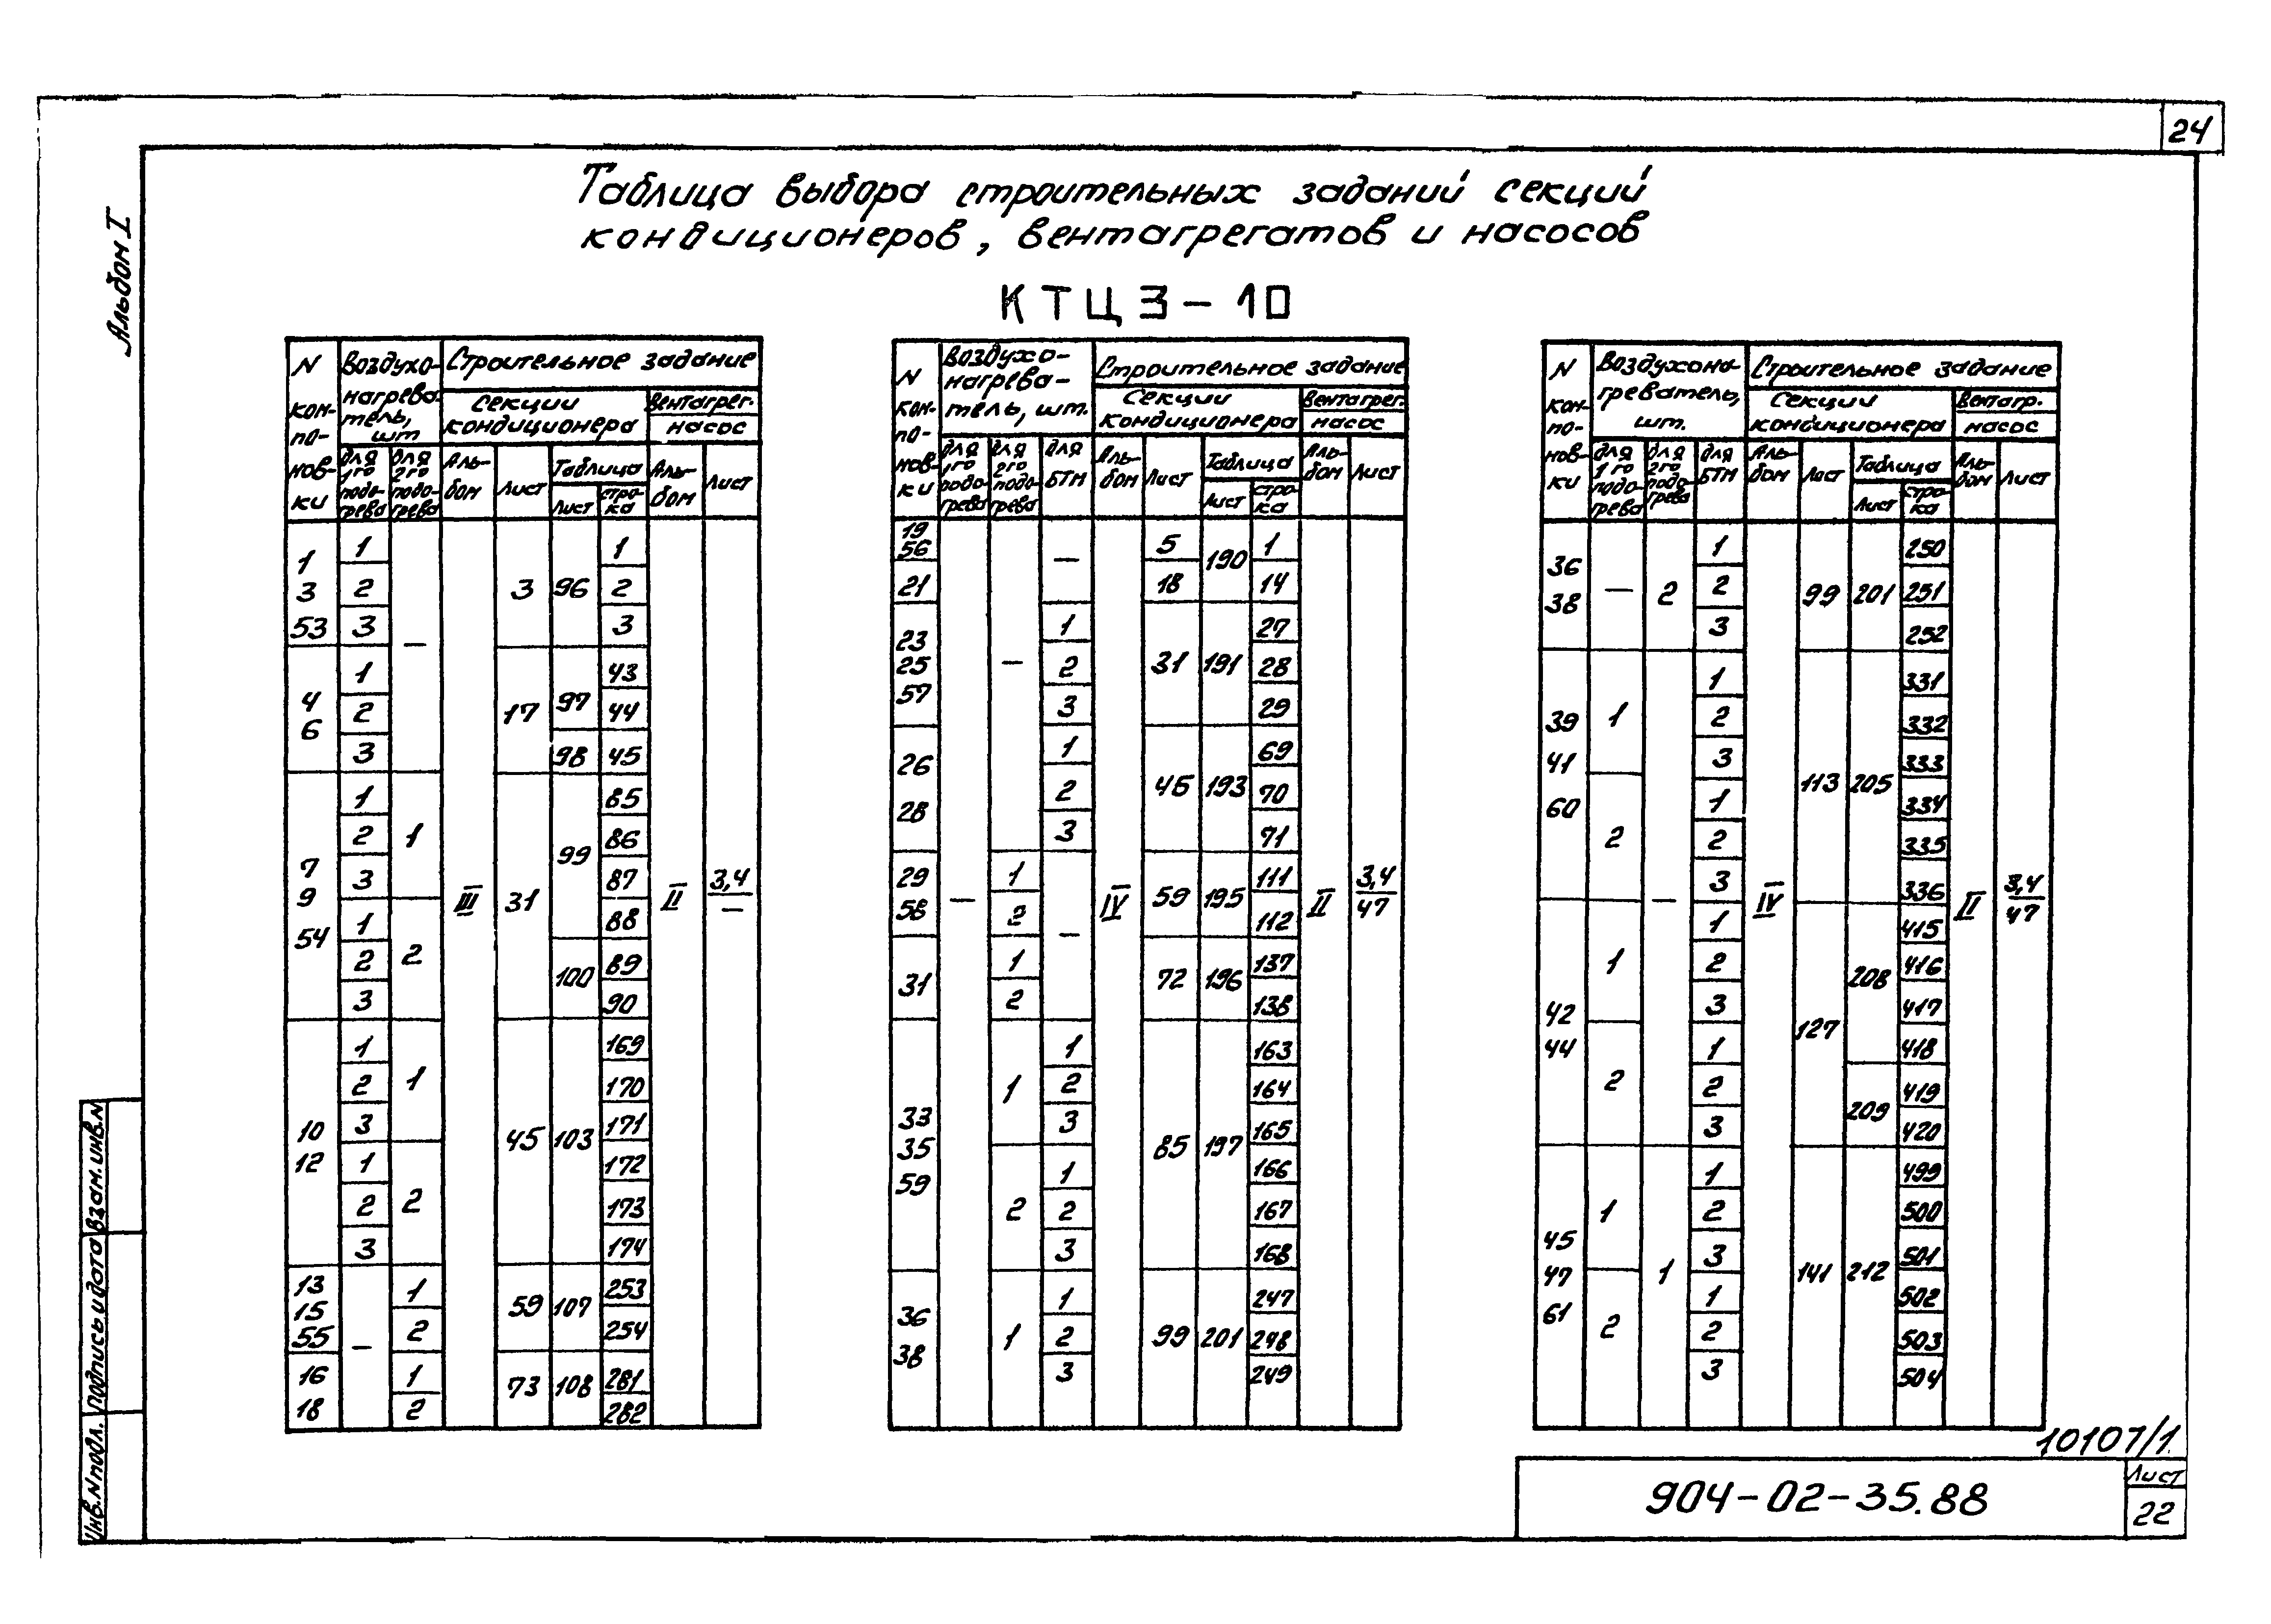 24
Альбом I
Таблица выбора строительных заданий секций
кондиционеров, вентагрегатов и насосов
КТЦ3-10
N компоновки | Воздухонагреватель, шт | Строительное задание
Секции кондиционера | Вентагрег. / насос
для 1го подогрева | для 2го подогрева | Альбом | Лист | Таблица | Альбом | Лист
Лист | строка
1 3 53 | 1 2 3 | — | III | 3 | 96 | 1 2 3 | II | 3,4 / —
4 6 | 1 2 3 | 17 | 97 | 43 44
98 | 45
7 9 54 | 1 2 3 | 1 | 31 | 99 | 85 86 87
1 2 3 | 2 | 88
100 | 89 90
10 12 | 1 2 3 | 1 | 45 | 103 | 169 170 171
1 2 3 | 2 | 172 173 174
13 15 55 | — | 1 2 | 59 | 107 | 253 254
16 18 | 1 2 | 73 | 108 | 281 282
N компоновки | Воздухонагреватель, шт. | Строительное задание
Секции кондиционера | Вентагрег. / насос
для 1го подогрева | для 2го подогрева | для БТМ | Альбом | Лист | Таблица | Альбом | Лист
Лист | строка
19 56 | — | — | — | IV | 5 | 190 | 1 | II | 3,4 / 47
21 | 18 | 14
23 25 57 | 1 2 3 | 31 | 191 | 27 28 29
26 28 | 1 2 3 | 45 | 193 | 69 70 71
29 58 | 1 2 | — | 59 | 195 | 111 112
31 | 1 2 | 72 | 196 | 137 138
33 35 59 | 1 | 1 2 3 | 85 | 197 | 163 164 165
2 | 1 2 3 | 166 167 168
36 38 | 1 | 1 2 3 | 99 | 201 | 247 248 249
N компоновки | Воздухонагреватель, шт. | Строительное задание
Секции кондиционера | Вентагр. / насос
для 1го подогрева | для 2го подогрева | для БТМ | Альбом | Лист | Таблица | Альбом | Лист
Лист | строка
36 38 | — | 2 | 1 2 3 | IV | 99 | 201 | 250 251 252 | II | 3,4 / 47
39 41 60 | 1 | — | 1 2 3 | 113 | 205 | 331 332 333
2 | 1 2 3 | 334 335 336
42 44 | 1 | 1 2 3 | 127 | 208 | 415 416 417
2 | 1 2 3 | 418
209 | 419 420
45 47 61 | 1 | 1 | 1 2 3 | 141 | 212 | 499 500 501
2 | 1 2 3 | 502 503 504
10107/1
904-02-35.88
Лист
22
Инв. N подл. Подпись и дата Взам. инв. N